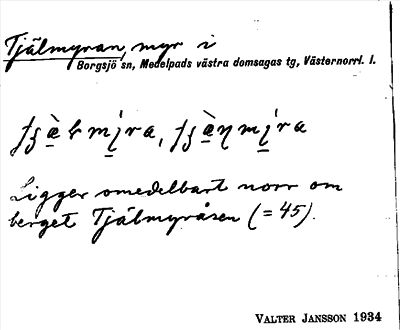 Tjälmyran, myr i
Borgsjö sn, Medelpads västra domsagas tg, Västernorrl. l.
Ligger omedelbart norr om
berget Tjälmyråsen (=45).
VALTER JANSSON 1934